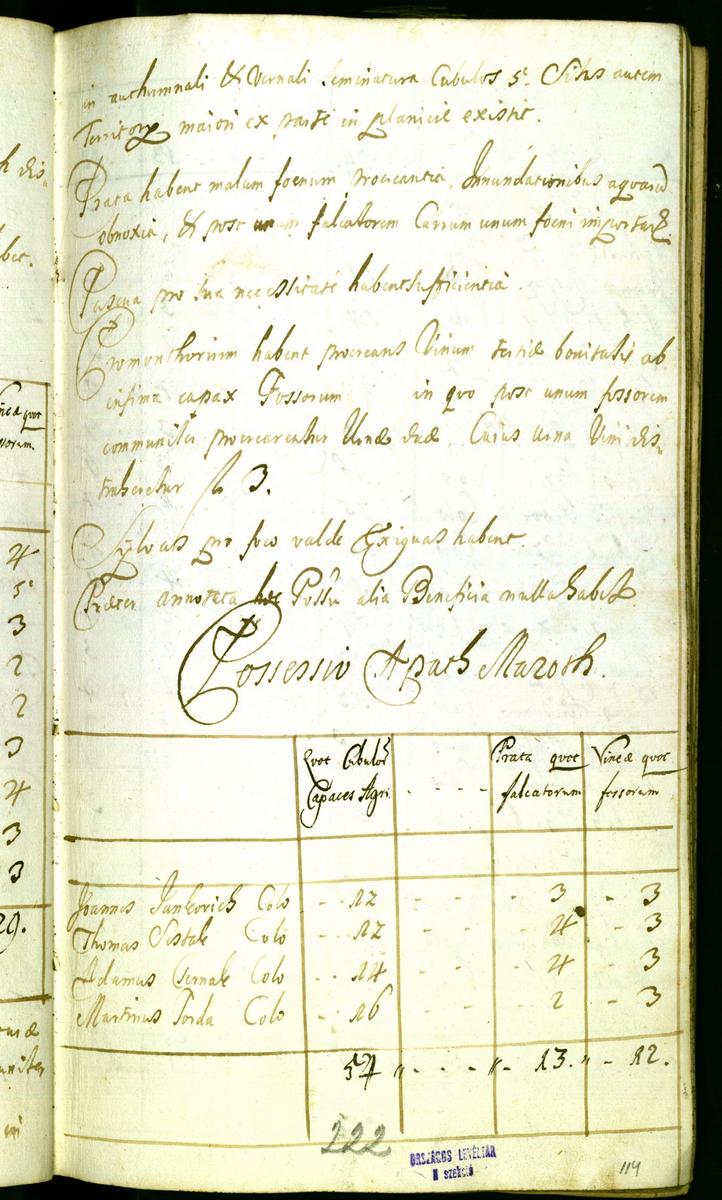 in authumnali & Vernali Seminatura Cubulos 5. Situs autem
Territory maiori ex parte in planicie existit.
Prata habent malum foenum procreantia, Innundationibus aquarū
obnoxia, & post unum falcatorem Currum unum foeni important
Pascua pro sua necessitate habent sufficientia
Promonthorium habent procreans Vinum tertiæ bonitatis ab
infima capax Fossorum in quo post unum fossorem
communiter procrearentur Urnæ duæ, Cuius Urna Vini dis-
traheretur fl 3.
Sylvas pro foco valde Exiguas habent.
Præter annotata hæc Possio alia Beneficia nulla habet
Possessio Apath Maroth.
Quot Cubulor Capaces Agri. - - - - Prata quot falcatorum Vineæ quot fossorum
Joannes Jankovich Colo - - 12 - - - 3 - 3
Thomas Sestak Colo - - 12 - - - 4 - 3
Adamus Cernak Colo - - 14 - - - 4 - 3
Martinus Torda Colo - - 16 - - - 2 - 3
54 „ - - - „ - 13. „ - 12.
222
ORSZÁGOS LEVÉLTÁR
II szekció
114